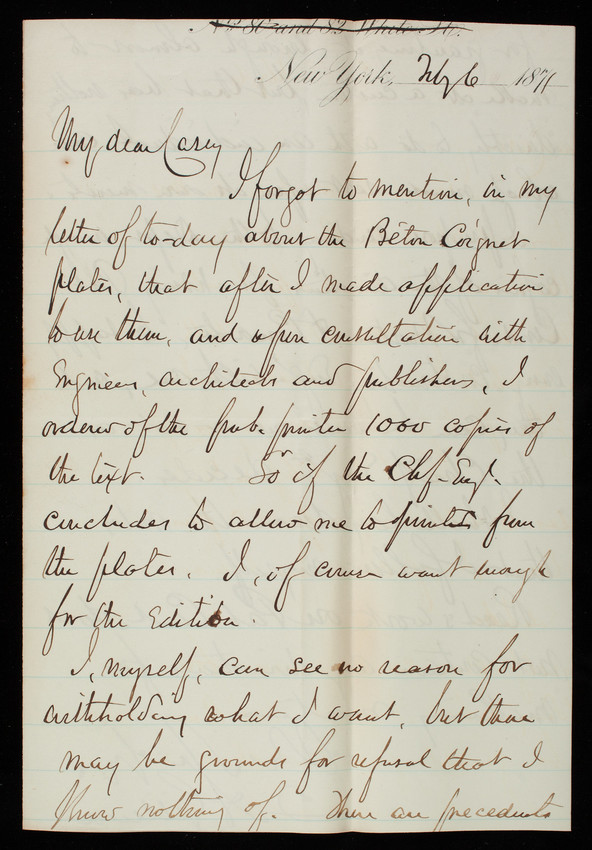 New York, Feby 6 1871
My dear Casey
I forgot to mention, in my
letter of to-day about the Béton Coignet
plates, that after I made application
to use them, and upon consultation with
Engineers, architects and publishers, I
ordered of the pub. printer 1000 copies of
the text. So if the Chf. Engr.
concludes to allow me to print from
the plates. I, of course want enough
for the Edition.
I, myself, can see no reason for
withholding what I want, but there
may be grounds for refusal that I
know nothing of. There are precedents